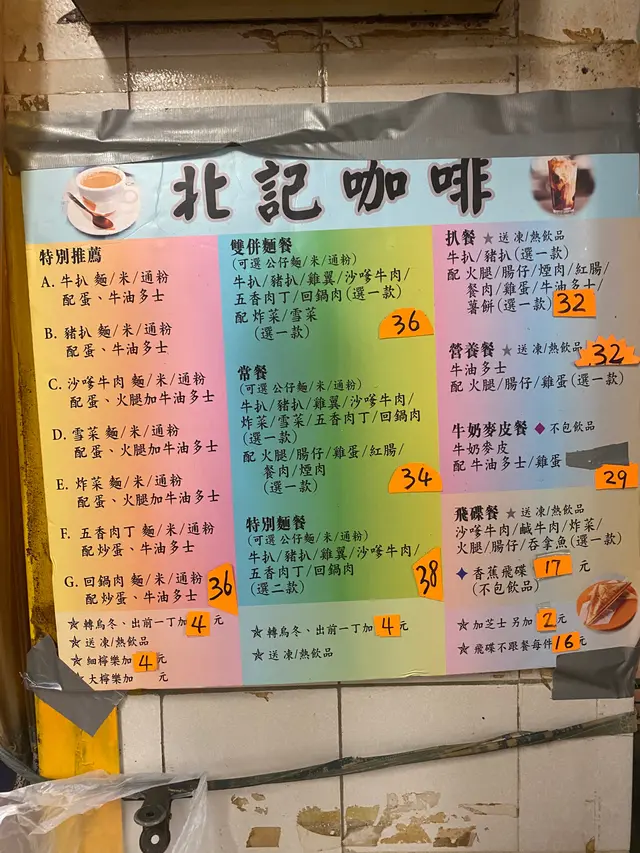 北記咖啡
特別推薦
A. 牛扒 麵/米/通粉
配蛋、牛油多士
B. 豬扒 麵/米/通粉
配蛋、牛油多士
C. 沙嗲牛肉 麵/米/通粉
配蛋、火腿加牛油多士
D. 雪菜 麵/米/通粉
配蛋、火腿加牛油多士
E. 炸菜 麵/米/通粉
配蛋、火腿加牛油多士
F. 五香肉丁 麵/米/通粉
配炒蛋、牛油多士
G. 回鍋肉 麵/米/通粉
配炒蛋、牛油多士
36
★ 轉烏冬、出前一丁加 4 元
★ 送 凍/熱飲品
★ 細檸樂加 4 元
大檸樂加 元
雙併麵餐
(可選 公仔麵/米/通粉)
牛扒/豬扒/雞翼/沙嗲牛肉/
五香肉丁/回鍋肉(選一款)
配 炸菜/雪菜
(選一款)
36
常餐
(可選 公仔麵/米/通粉)
牛扒/豬扒/雞翼/沙嗲牛肉/
炸菜/雪菜/五香肉丁/回鍋肉
(選一款)
配 火腿/腸仔/雞蛋/紅腸/
餐肉/煙肉
(選一款)
34
特別麵餐
(可選 公仔麵/米/通粉)
牛扒/豬扒/雞翼/沙嗲牛肉/
五香肉丁/回鍋肉
(選二款)
38
★ 轉烏冬、出前一丁加 4 元
★ 送 凍/熱飲品
扒餐 ★ 送 凍/熱飲品
牛扒/豬扒(選一款)
配 火腿/腸仔/煙肉/紅腸/
餐肉/雞蛋/牛油多士/
薯餅(選一款) 32
營養餐 ★ 送 凍/熱飲品 32
牛油多士
配 火腿/腸仔/雞蛋(選一款)
牛奶麥皮餐 ◆ 不包飲品
牛奶麥皮
配 牛油多士/雞蛋
29
飛碟餐 ★ 送 凍/熱飲品
沙嗲牛肉/鹹牛肉/炸菜/
火腿/腸仔/吞拿魚(選一款)
◆ 香蕉飛碟 17 元
(不包飲品)
★ 加芝士 另加 2 元
★ 飛碟不跟餐每件 16 元